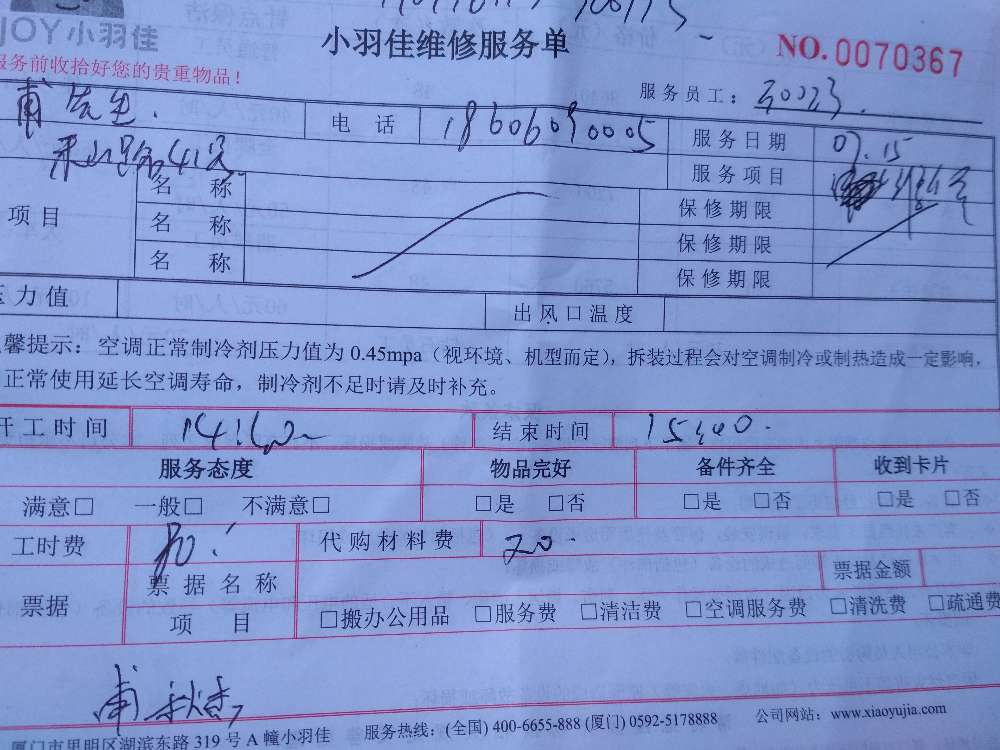 JOY小羽佳
小羽佳维修服务单
NO.0070367
服务前收拾好您的贵重物品！
服务员工：
先生
电 话 18606090005 服务日期 07.15
41号 服务项目
项目 名 称 保修期限
名 称 保修期限
名 称 保修期限
压力值 出风口温度
温馨提示：空调正常制冷剂压力值为0.45mpa（视环境、机型而定），拆装过程会对空调制冷或制热造成一定影响，
正常使用延长空调寿命，制冷剂不足时请及时补充。
开工时间 结束时间 15:40.
服务态度 物品完好 备件齐全 收到卡片
满意□ 一般□ 不满意□ □是 □否 □是 □否 □是 □否
工时费 代购材料费 20.
票据 票据名称 票据金额
项 目 □搬办公用品 □服务费 □清洁费 □空调服务费 □清洗费 □疏通费
厦门市思明区湖滨东路 319 号 A 幢小羽佳 服务热线：(全国) 400-6655-888 (厦门) 0592-5178888 公司网站：www.xiaoyujia.com